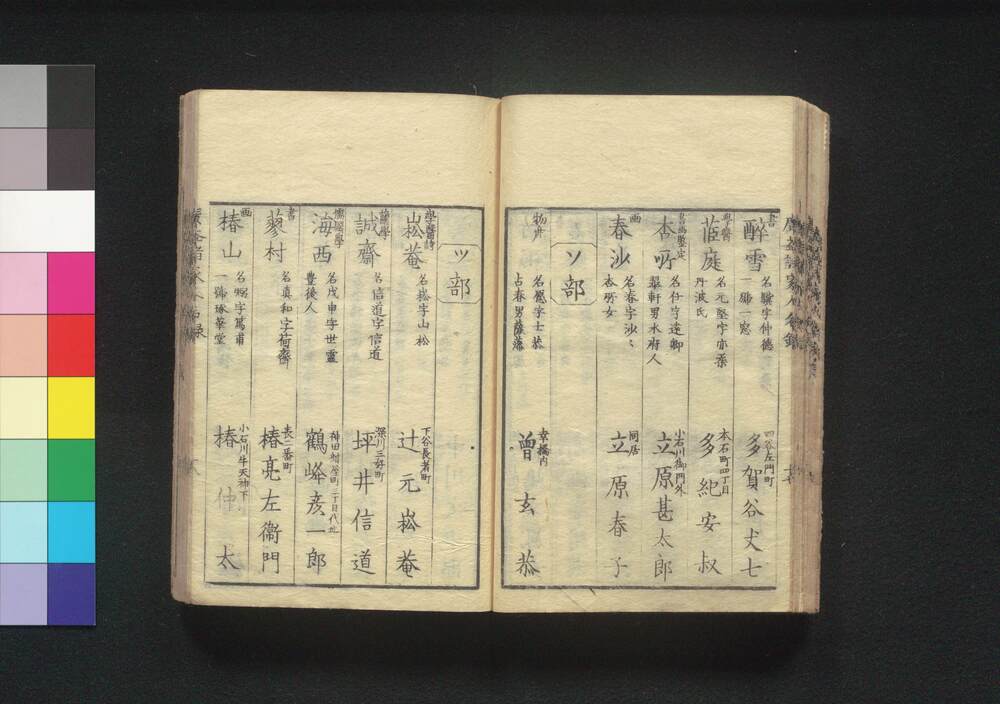 書
醉雪
一號一窓
四谷左門町
多賀谷犬七
茝庭
名元堅字亦柔
丹波氏
本石町四丁目
多紀安叔
杏所
名任字遠卿
翠軒男水府人
小石川御門外
立原甚太郎
画
春沙
名春字沙々
杏所女
同居
立原春子
ソ部
物産
名愿字士恭
占春男薩藩
幸橋内
曽玄恭
ツ部
學醫詩
崧菴
名崧字山松
下谷長者町
辻元崧菴
誠齋
名信道字信道
深川三好町
坪井信道
海西
名戊申字世靈
豊後人
鶴峰彦一郎
書
蓼村
名真和字荷齋
表二番町
椿亮左衞門
画
椿山
名弼字篤甫
一號琢華堂
小石川牛天神下
椿仲太